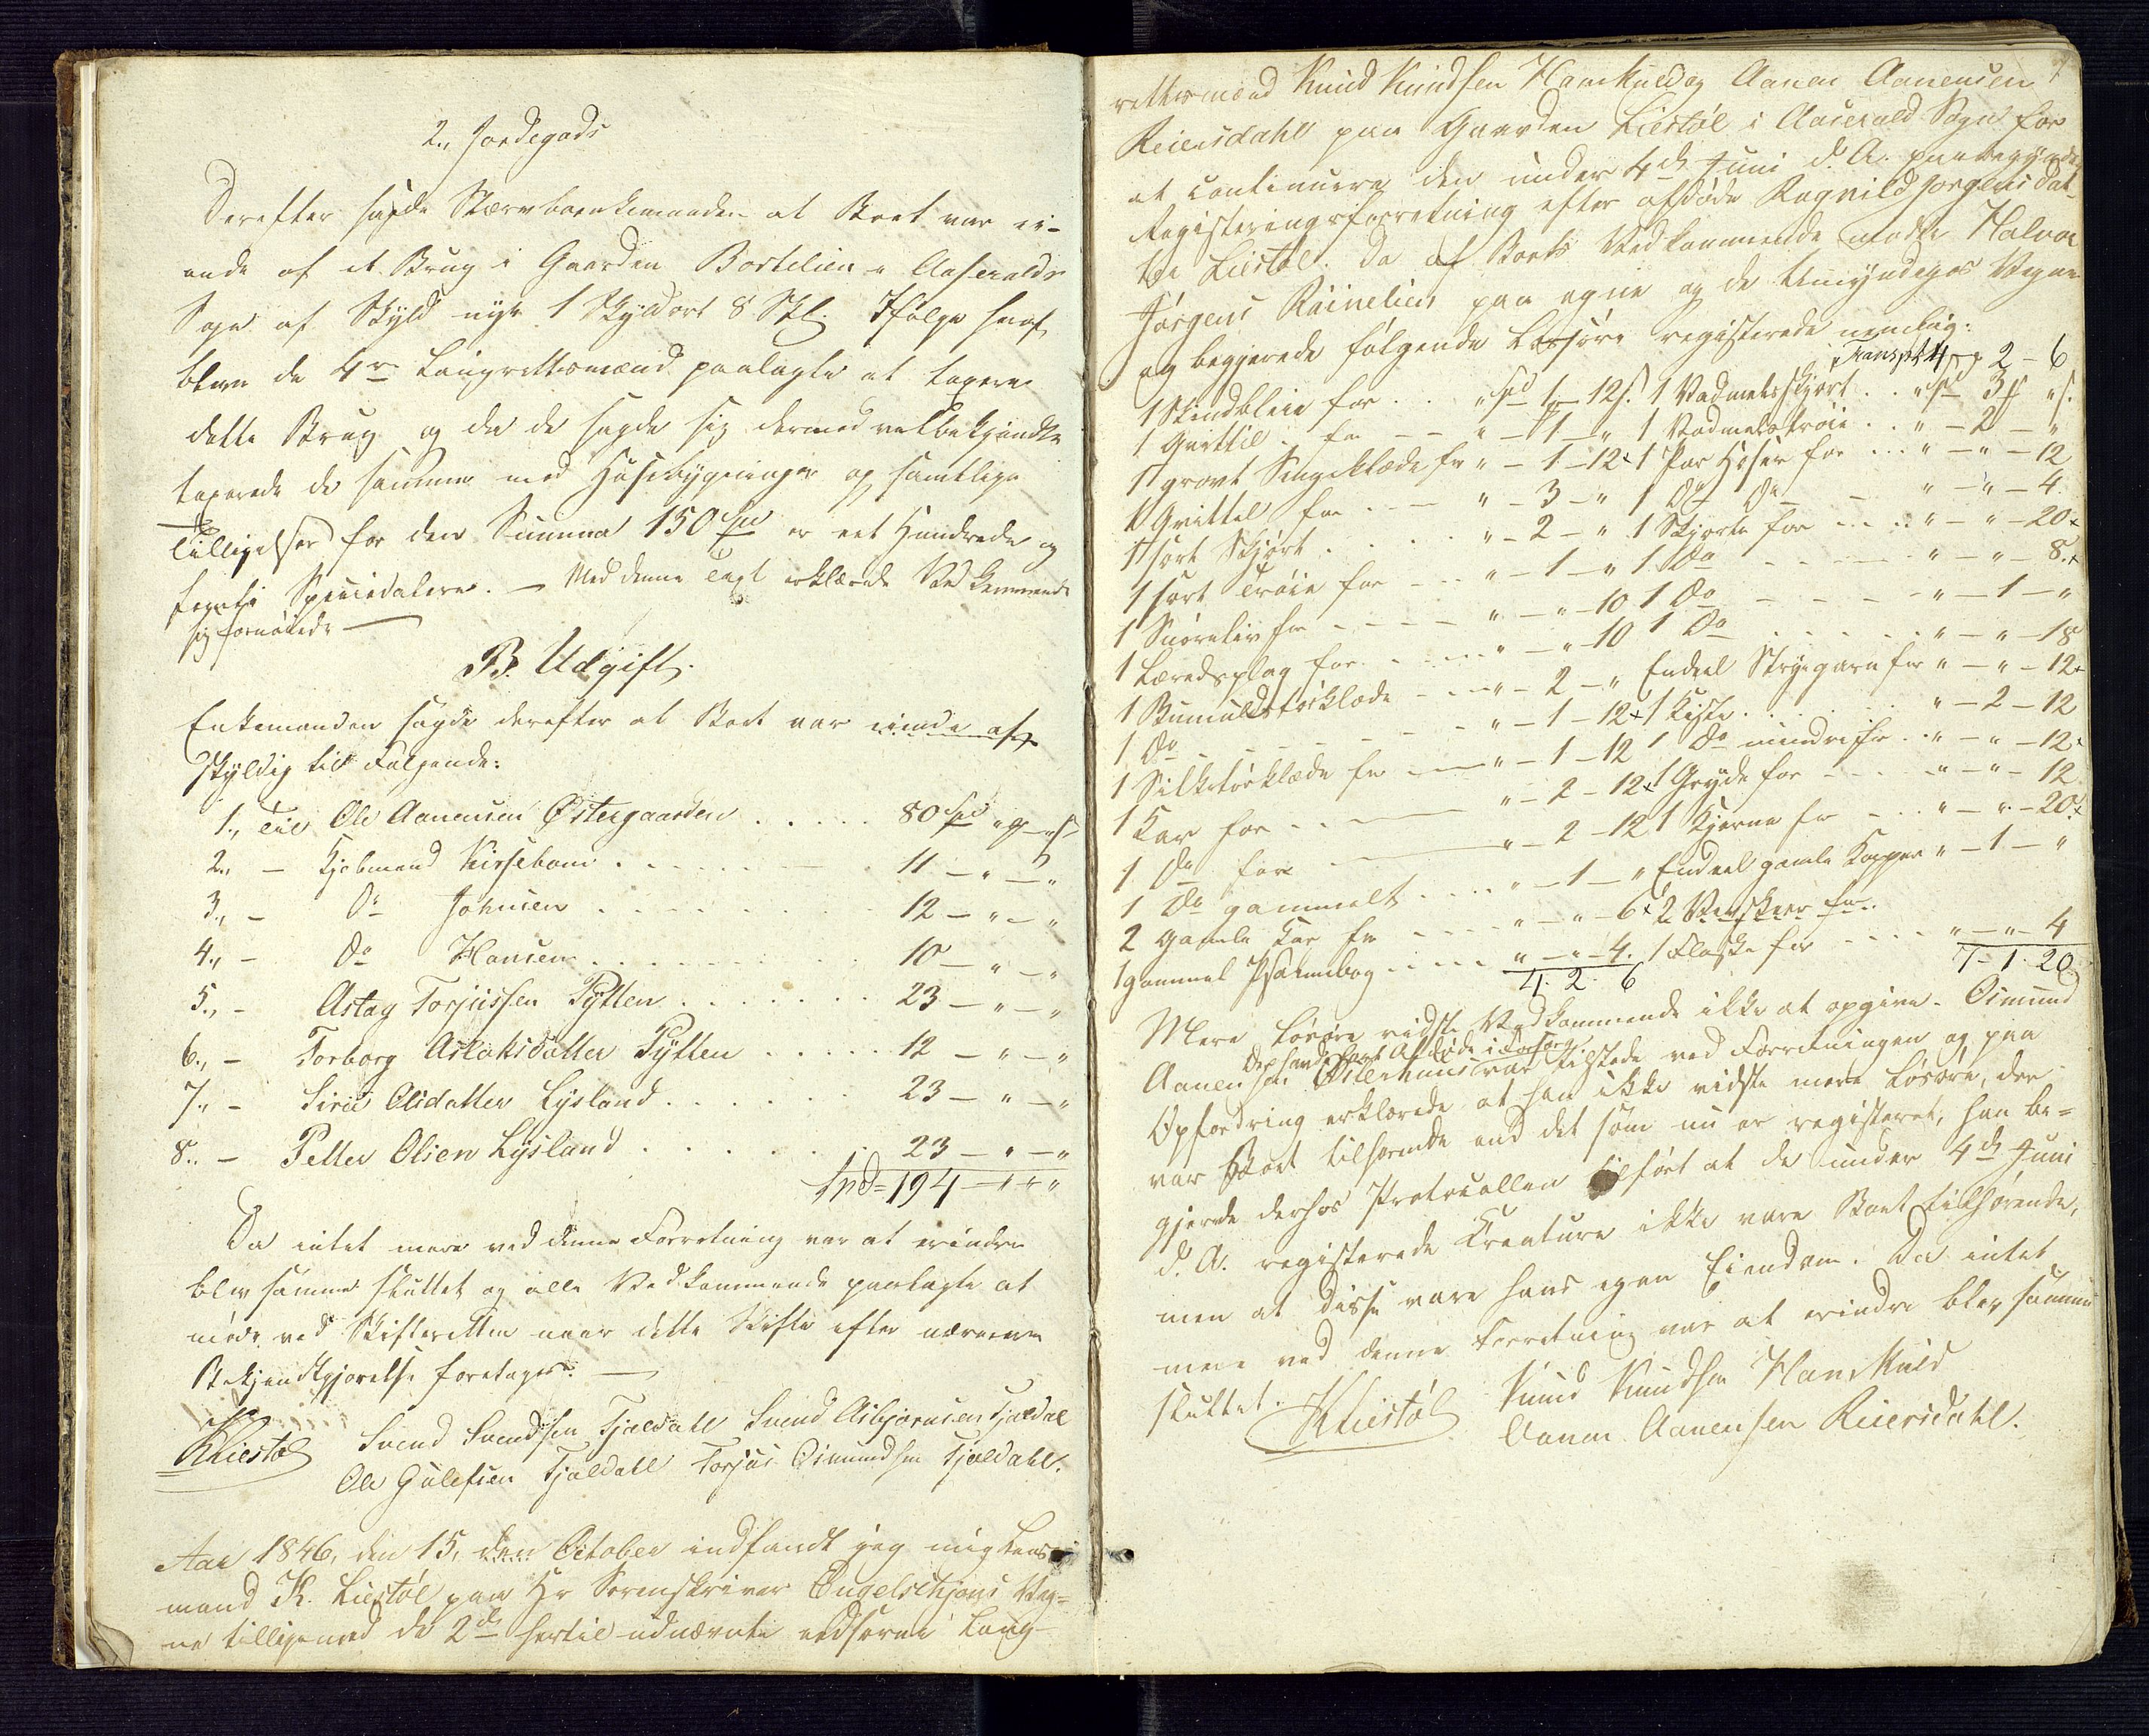 2., Jordegods
Derefter sagde Stervboenkemanden at Boet var ei-
ende af et Brug i Gaarden Bortelien i Aaseralds
Sogn af Skyld nye 1 Skyldort 8 Skl. Ifølge heraf
bleve de 4re Laugrettesmænd paalagte at taxere
dette Brug og da de sagde sig dermed velbekjendte
taxerede de samme med Huusebygninger og samtlige
Tilligelser for den Summa 150 Spd er eet Hundrede og
femti Speciedalere. — Med denne Taxt erklærede Vedkommende
sig fornøiede —
B. Udgift.
Enkemanden sagde derefter at Boet var eiende af
skyldig til Følgende:
1., Til Ole Aanensen Østergaarden . . . . . 80 Spd " ₰ " s
2., — Kjøbmand Kirsebom . . . . . 11 — " — "
3., — Do Johnsen . . . . . 12 — " — "
4., — Do Hansen . . . . . 10 — " — "
5., — Astag Torjussen Pytten . . . . . 23 — " — "
6., — Torborg Aslaksdatter Pytten . . . . . 12 — " — "
7., — Siri Olsdatter Lysland . . . . . 23 — " — "
8., — Petter Olsen Lysland . . . . . 23 — " — "
Spd = 194 — " "
Da intet mere ved denne Forretning var at erindre
blev samme sluttet og alle Vedkommende paalagte at
møde ved Skifteretten naar dette Skifte efter nærmere
Bekjendtgjørelse foretages. —
KLiestøl Svend Svendsen Kjældahl Svend Asbjørnsen Kjældal
Ole Gulefsen Kjældahl Torjus Osmundsen Kjældahl.
Aar 1846, den 15, den October indfandt jeg mig Lens-
mand K. Liestøl paa Hr Sorenskriver Engelschjøns Veg-
ne tilligemed de 2de hertil udnævnte edsorne Laug-
rettesmænd Knud Knudsen Hamkuld og Aanen Aanensen
Reiersdahl paa Gaarden Liestøl i Aaserald Sogn for
at continuere den under 4de Juni d. A. paabegyndte
Registeringsforretning efter afdøde Ragnild Jørgensdat-
ter Liestøl. Da af Boets Vedkommende mødte Halvor
Jørgens Røinelien paa egne og de Umyndiges Vegne
og begjerede følgende Løsøre registerede nemlig:
Transpt 4 — 2 — 6
1 Skindbleie for . . " spd 1 — 12 s. 1 Vadmelsskjørt . . " spd 3 ₰ " s.
1 Qvittel for — — " — 1 — " 1 Vadmelstrøie . . " — 2 — "
1 grovt Sengeklæde for " — 1 — 12 1 Par Hoser for . . . " — " — 12
1 Qvittel for . . — " — 3 — " 1 Do Do — " — " — 4
1 sort Skjørt . . . . " — 2 — " 1 Skjorte for . . . " — " — 20
1 sort Trøie for — . . " — 1 — " 1 Do . . . . " — " — 8
1 Snøreliv for . . . . " — " — 10 1 Do . . . . " — 1 — "
1 Læredsplag for . . . . " — " 10 1 Do . . . . " — " — 18
1 Bumuldstørklæde . . " — 2 — " Endeel Strygarn for " — " — 12
1 Do . . . . " — 1 — 12 1 Kiste . . . . " — 2 — 12
1 Silketørklæde for — " — 1 — 12 1 Do mindre for . . " — " — 12
1 Kar for . . — " — 2 — 12 1 Gryde for . . . " — " — 12
1 Do for — " — 2 — 12 1 Kjerne for . . . " — " — 20
1 Do gammelt . . . . " — 1 — " Endeel gamle Kopper " — 1 — "
2 gamle Kar for . . . " — " — 6 2 for
1 gammel Psalmebog . . . . " — " — 4. 1 Flaske for . . . " — " — 4
4. 2. 6 7 — 1. 20
Mere Løsøre vidste Vedkommende ikke at opgive. Osmund
Aanensen var tilstede ved Forretningen og paa
Opfordring erklærede at han ikke vidste mere Løsøre, der
var Boet tilhørende end det som nu er registeret, han be-
gjerede derhos Protocollen tilført at de under 4de Juni
d. A. registerede Creature ikke vare Boet tilhørende,
men at disse vare hans egen Eiendom. Da intet
mere ved denne Forretning var at erindre blev samme
sluttet.
KLiestøl Knud Knudsen Hamkuld
Aanen Aanensen Reiersdahl.